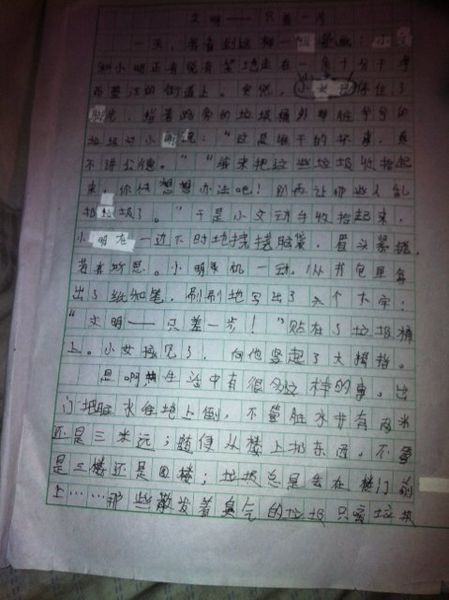 文明——只差一步
一天，我看到这样一幅漫画：小文
和小明正有说有笑地走在一条十分干净
而整洁的街道上。突然，小文停住了
脚步，指着路旁的垃圾桶外那脏兮兮的
垃圾对小明说："这是谁干的坏事，真
不讲公德。" "咱来把这些垃圾收拾起
来，你快想想办法吧！别再让那些人乱
扔垃圾了。"于是小文动手收拾起来，
小明在一边不时地挠挠脑袋，眉头紧锁，
若有所思。小明灵机一动，从书包里拿
出了纸和笔，刷刷地写出了六个大字：
"文明——只差一步！"贴在了垃圾桶
上。小文见了，向他竖起了大拇指。
是啊，生活中有很多这样的事。出
门把脏水往地上倒，不管脏水井有两米
还是三米远；随便从楼上扔东西，不管
是三楼还是四楼；垃圾总是会在楼门前
上……那些散发着臭气的垃圾只离垃圾